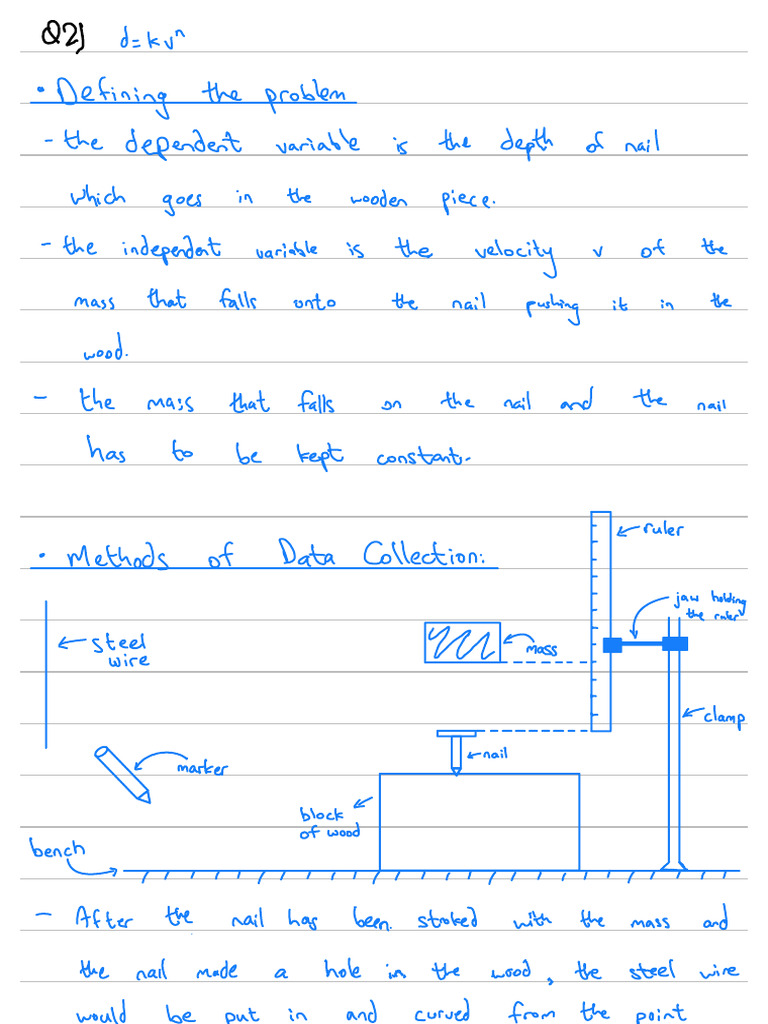 Q2) d = k vⁿ
• Defining the problem
- the dependent variable is the depth of nail
which goes in the wooden piece.
- the independent variable is the velocity v of the
mass that falls onto the nail pushing it in the
wood.
- the mass that falls on the nail and the nail
has to be kept constant.
• Methods of Data Collection:
ruler
jaw holding
the ruler
steel
wire
mass
clamp
nail
marker
block
of wood
bench
- After the nail has been stroked with the mass and
the nail made a hole in the wood, the steel wire
would be put in and curved from the point